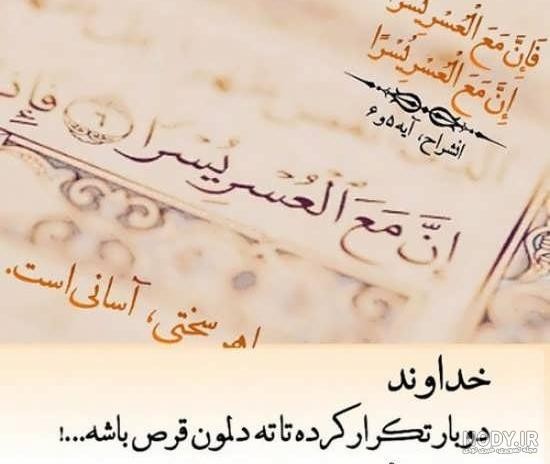 فَإِنَّ مَعَ الْعُسْرِ يُسْرًا
إِنَّ مَعَ الْعُسْرِ يُسْرًا
انشراح، آیه ۵و۶
إِنَّ مَعَ الْعُسْرِ يُسْرًا ٦ فَإِذَ
سختی، آسانی است.
خداوند
دوبار تکرار کرده تا ته دلمون قرص باشه...!
UODY.IR